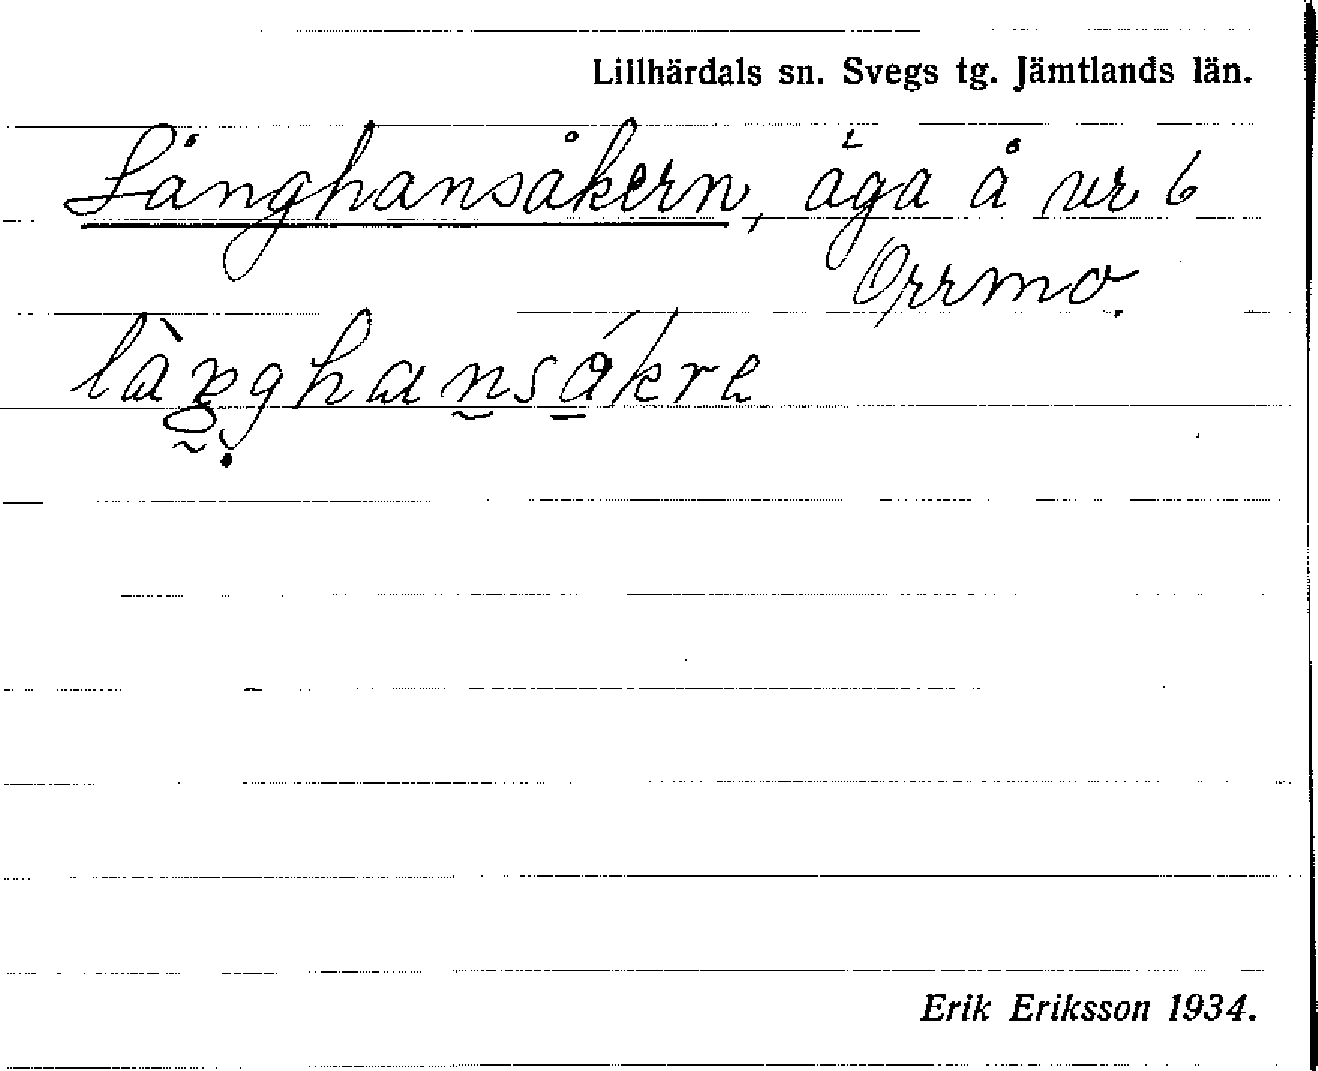 Lillhärdals sn. Svegs tg. Jämtlands län.
Långhansåkern, åga å nr 6
Orrmo.
lànghansákre
Erik Eriksson 1934.